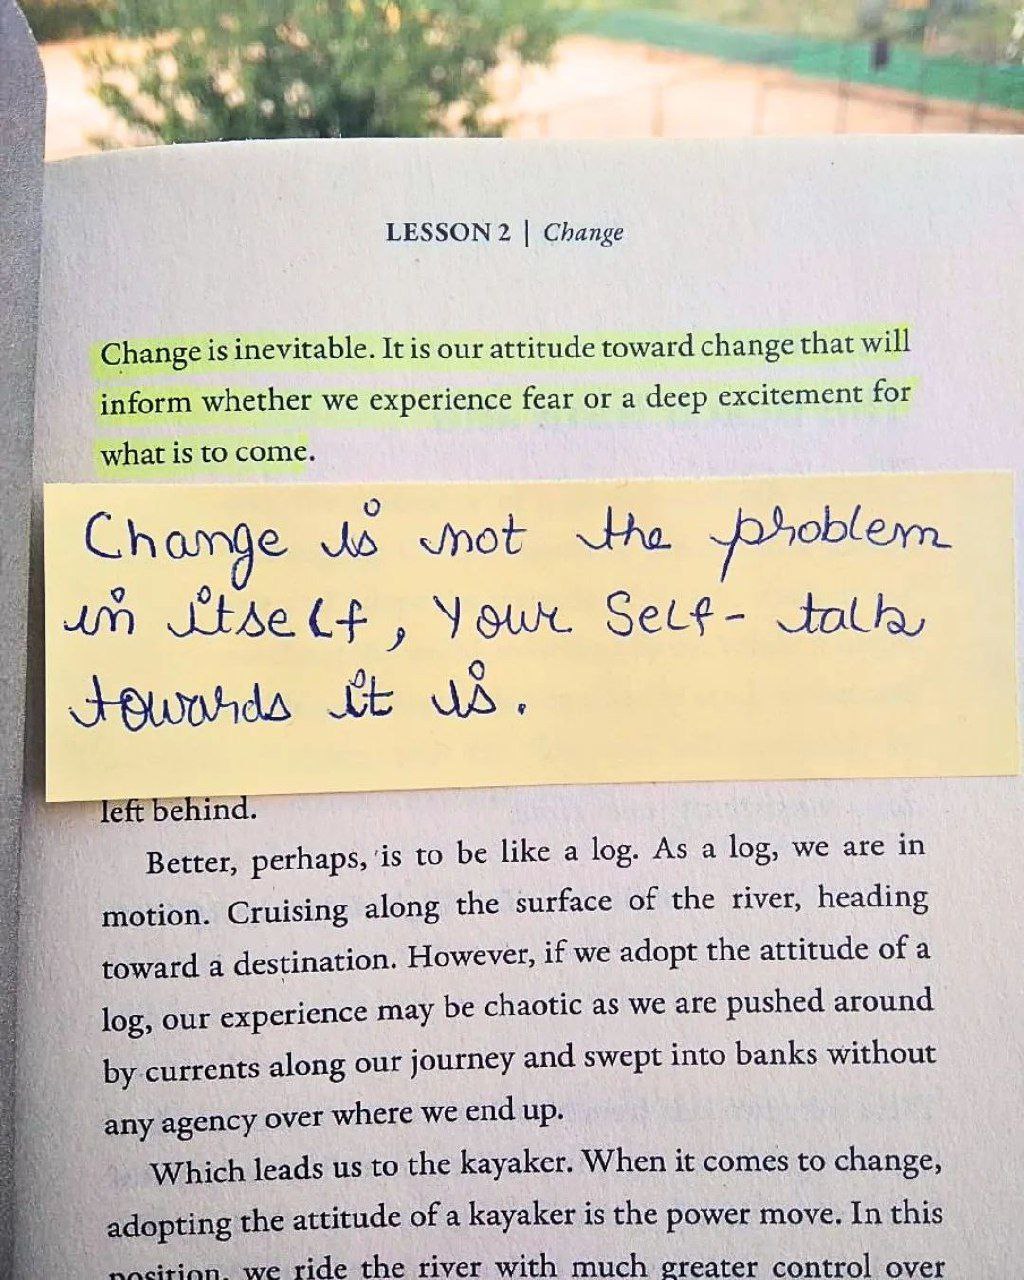 LESSON 2 | Change
Change is inevitable. It is our attitude toward change that will
inform whether we experience fear or a deep excitement for
what is to come.
Change is not the problem
in itself, Your Self- talk
towards it is.
left behind.
Better, perhaps, is to be like a log. As a log, we are in
motion. Cruising along the surface of the river, heading
toward a destination. However, if we adopt the attitude of a
log, our experience may be chaotic as we are pushed around
by currents along our journey and swept into banks without
any agency over where we end up.
Which leads us to the kayaker. When it comes to change,
adopting the attitude of a kayaker is the power move. In this
position, we ride the river with much greater control over